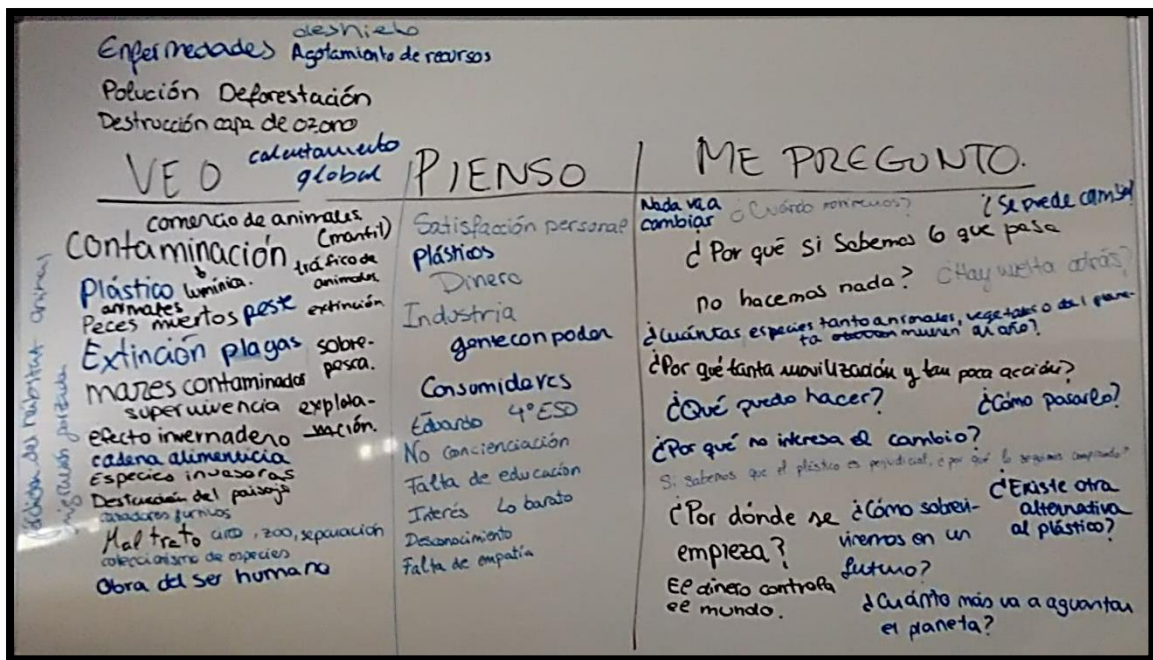 deshielo
Enfermedades Agotamiento de recursos
Polución Deforestación
Destrucción capa de ozono
calentamiento
global
VEO
comercio de animales
(marfil)
contaminación
tráfico de
animales
Plástico lumínica.
animales
Peces muertos peste extinción
Extinción plagas sobre-
pesca.
mares contaminados
supervivencia explota-
ción.
efecto invernadero
cadena alimenticia
Especies invasoras
Destrucción del paisaje
cazadores furtivos
Maltrato circo, zoo, separación
coleccionismo de especies
Obra del ser humano
del hábitat animal
PIENSO
Satisfacción personal
Plásticos
Dinero
Industria
gente con poder
Consumidores
Eduardo 4º ESO
No concienciación
Falta de educación
Interés Lo barato
Desconocimiento
Falta de empatía
ME PREGUNTO.
Nada va a
cambiar
¿Se puede cambiar
¿Por qué si sabemos lo que pasa
no hacemos nada? ¿Hay vuelta atrás?
¿Cuántas especies tanto animales, vegetales o del plane-
ta mueren al año?
¿Por qué tanta movilización y tan poca acción?
¿Qué puedo hacer? ¿Cómo pasarlo?
¿Por qué no interesa el cambio?
Si sabemos que el plástico es perjudicial, ¿por qué lo seguimos comprando?
¿Por dónde se
empieza?
¿Cómo sobrevi-
viremos en un
futuro?
¿Existe otra
alternativa
al plástico?
El dinero controla
el mundo.
¿Cuánto más va a aguantar
el planeta?